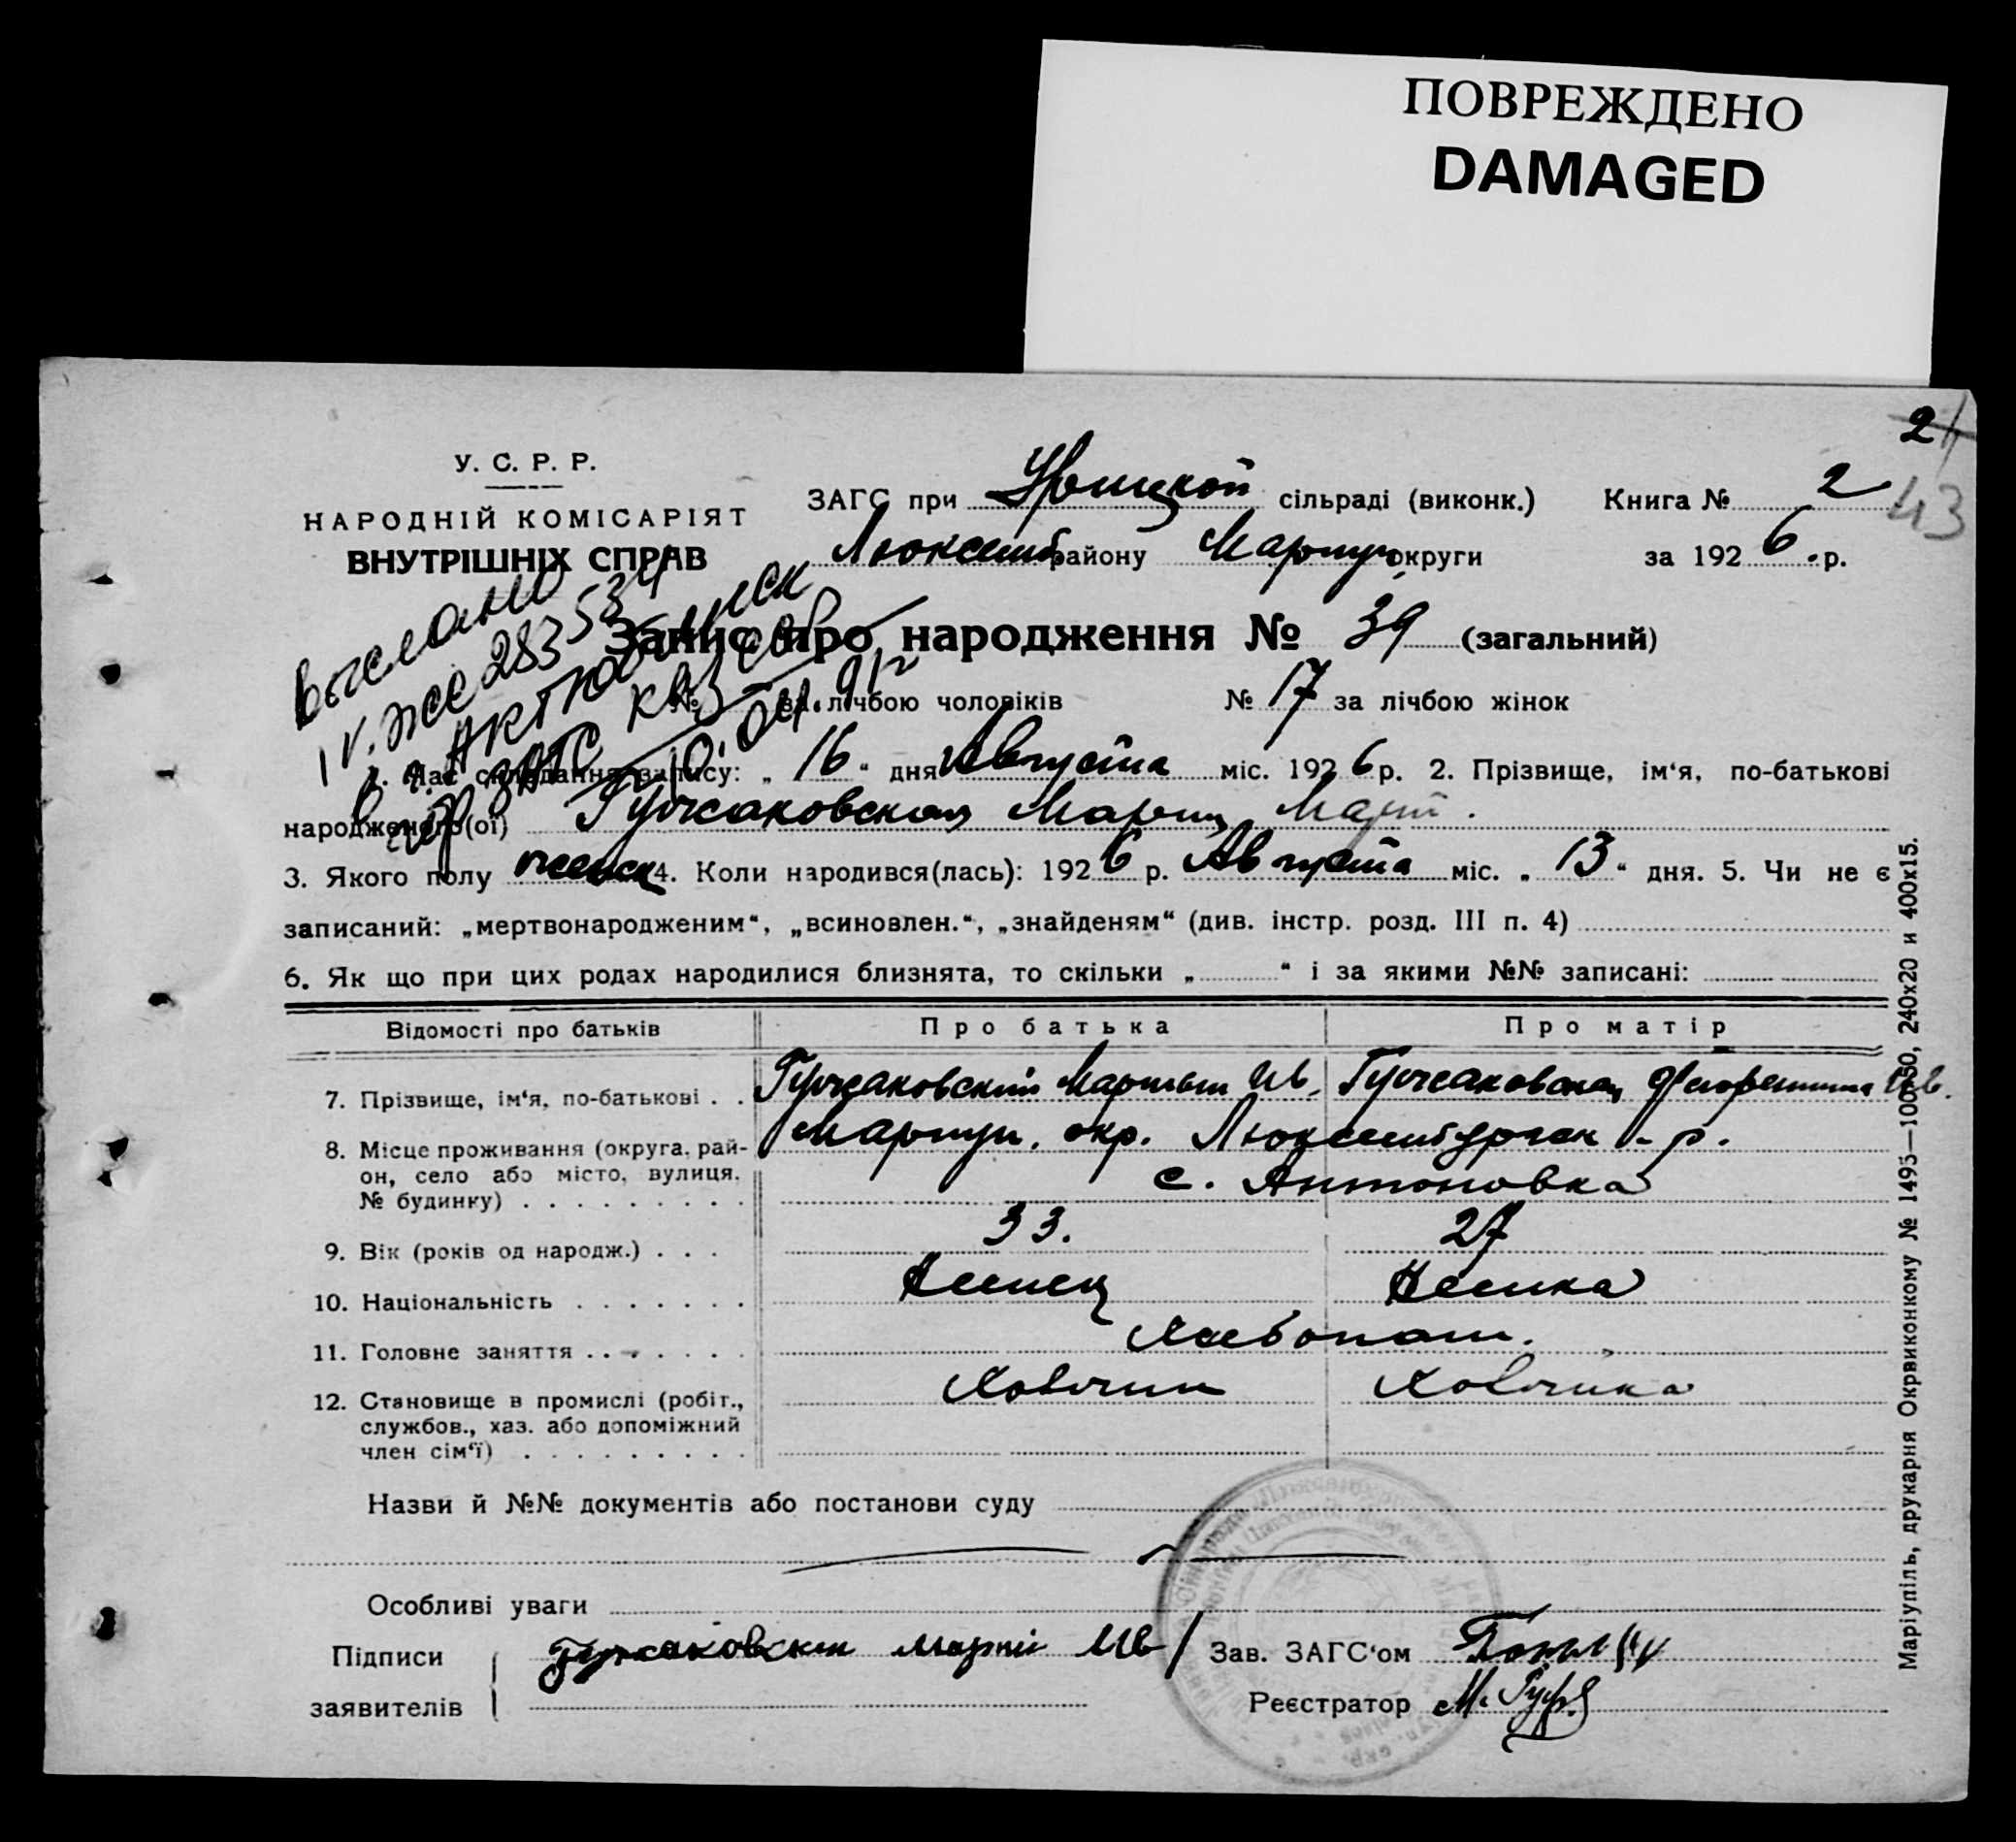 ПОВРЕЖДЕНО
DAMAGED
2
43
У. С. Р. Р.
НАРОДНІЙ КОМІСАРІЯТ
ВНУТРІШНІХ СПРАВ
ЗАГС при сільраді (виконк.) Книга № 2
Люксемб району Мариуп. округи за 1926 р.
выслано
283534
10.04.91г
Запис про народження № 39 (загальний)
№ за лічбою чоловіків № 17 за лічбою жінок
1. Час складання запису: „ 16 “ дня Августа міс. 1926 р. 2. Прізвище, ім‘я, по-батькові
народженого(ої) Гуржаковская Мария Март.
3. Якого полу женск 4. Коли народився(лась): 1926 р. Августа міс. „ 13 “ дня. 5. Чи не є
записаний: „мертвонародженим“, „всиновлен.“, „знайденям“ (див. інстр. розд. III п. 4)
6. Як що при цих родах народилися близнята, то скільки „ “ і за якими №№ записані:
Відомості про батьків Про батька Про матір
7. Прізвище, ім‘я, по-батькові . . Гуржаковский Мартын Ив. Гуржаковская Ив.
8. Місце проживання (округа, рай-он, село або місто, вулиця, № будинку) Мариуп. окр. Люксембургск - р.
с. Антоновка
9. Вік (років од народж.) . . . 33. 27
10. Національність Немец Немка
11. Головне заняття Хлебопаш.
12. Становище в промислі (робіт.,
службов., хаз. або допоміжний
член сім‘ї)
Хозяин Хозяйка
Назви й №№ документів або постанови суду
Особливі уваги
Підписи
заявителів
Гуржаковски Мартин Ив
Зав. ЗАГС‘ом
Реєстратор М.
Маріупіль, друкарня Окрвиконкому № 1495—100×50, 240х20 и 400х15.